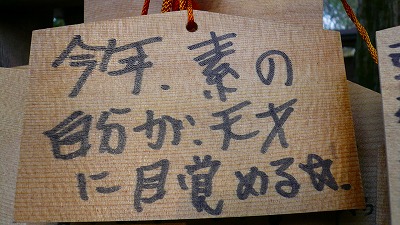 今年、素の
自分が、天才
に目覚める女、